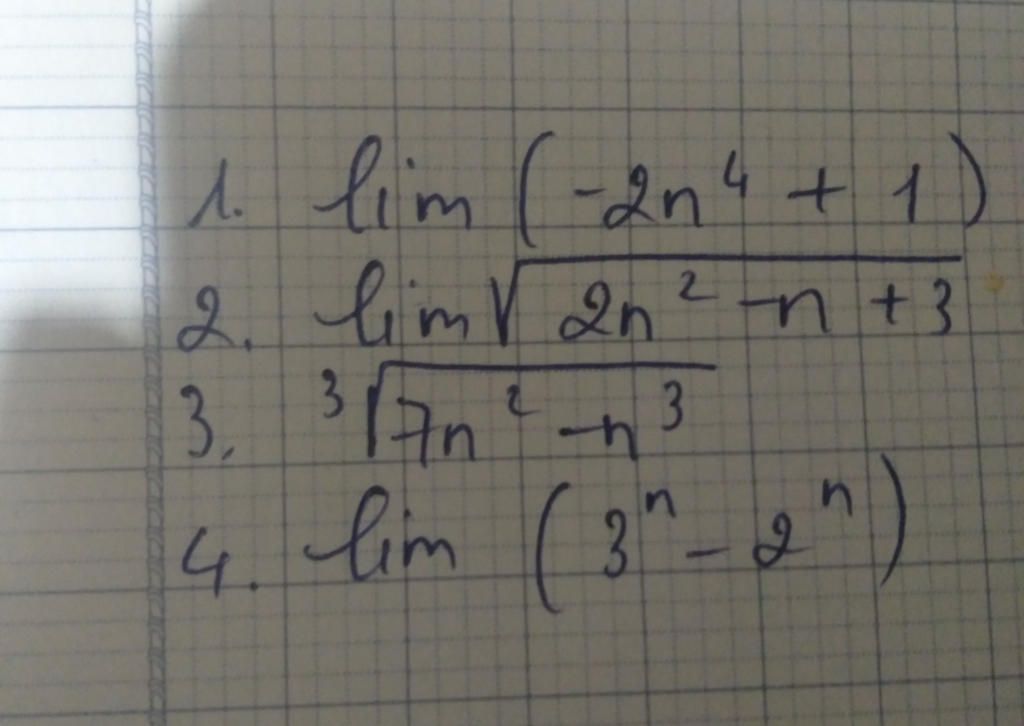 1. lim (-2n⁴ + 1)
2. lim √(2n² - n + 3)
3. ³√(7n² - n³)
4. lim (3ⁿ - 2ⁿ)